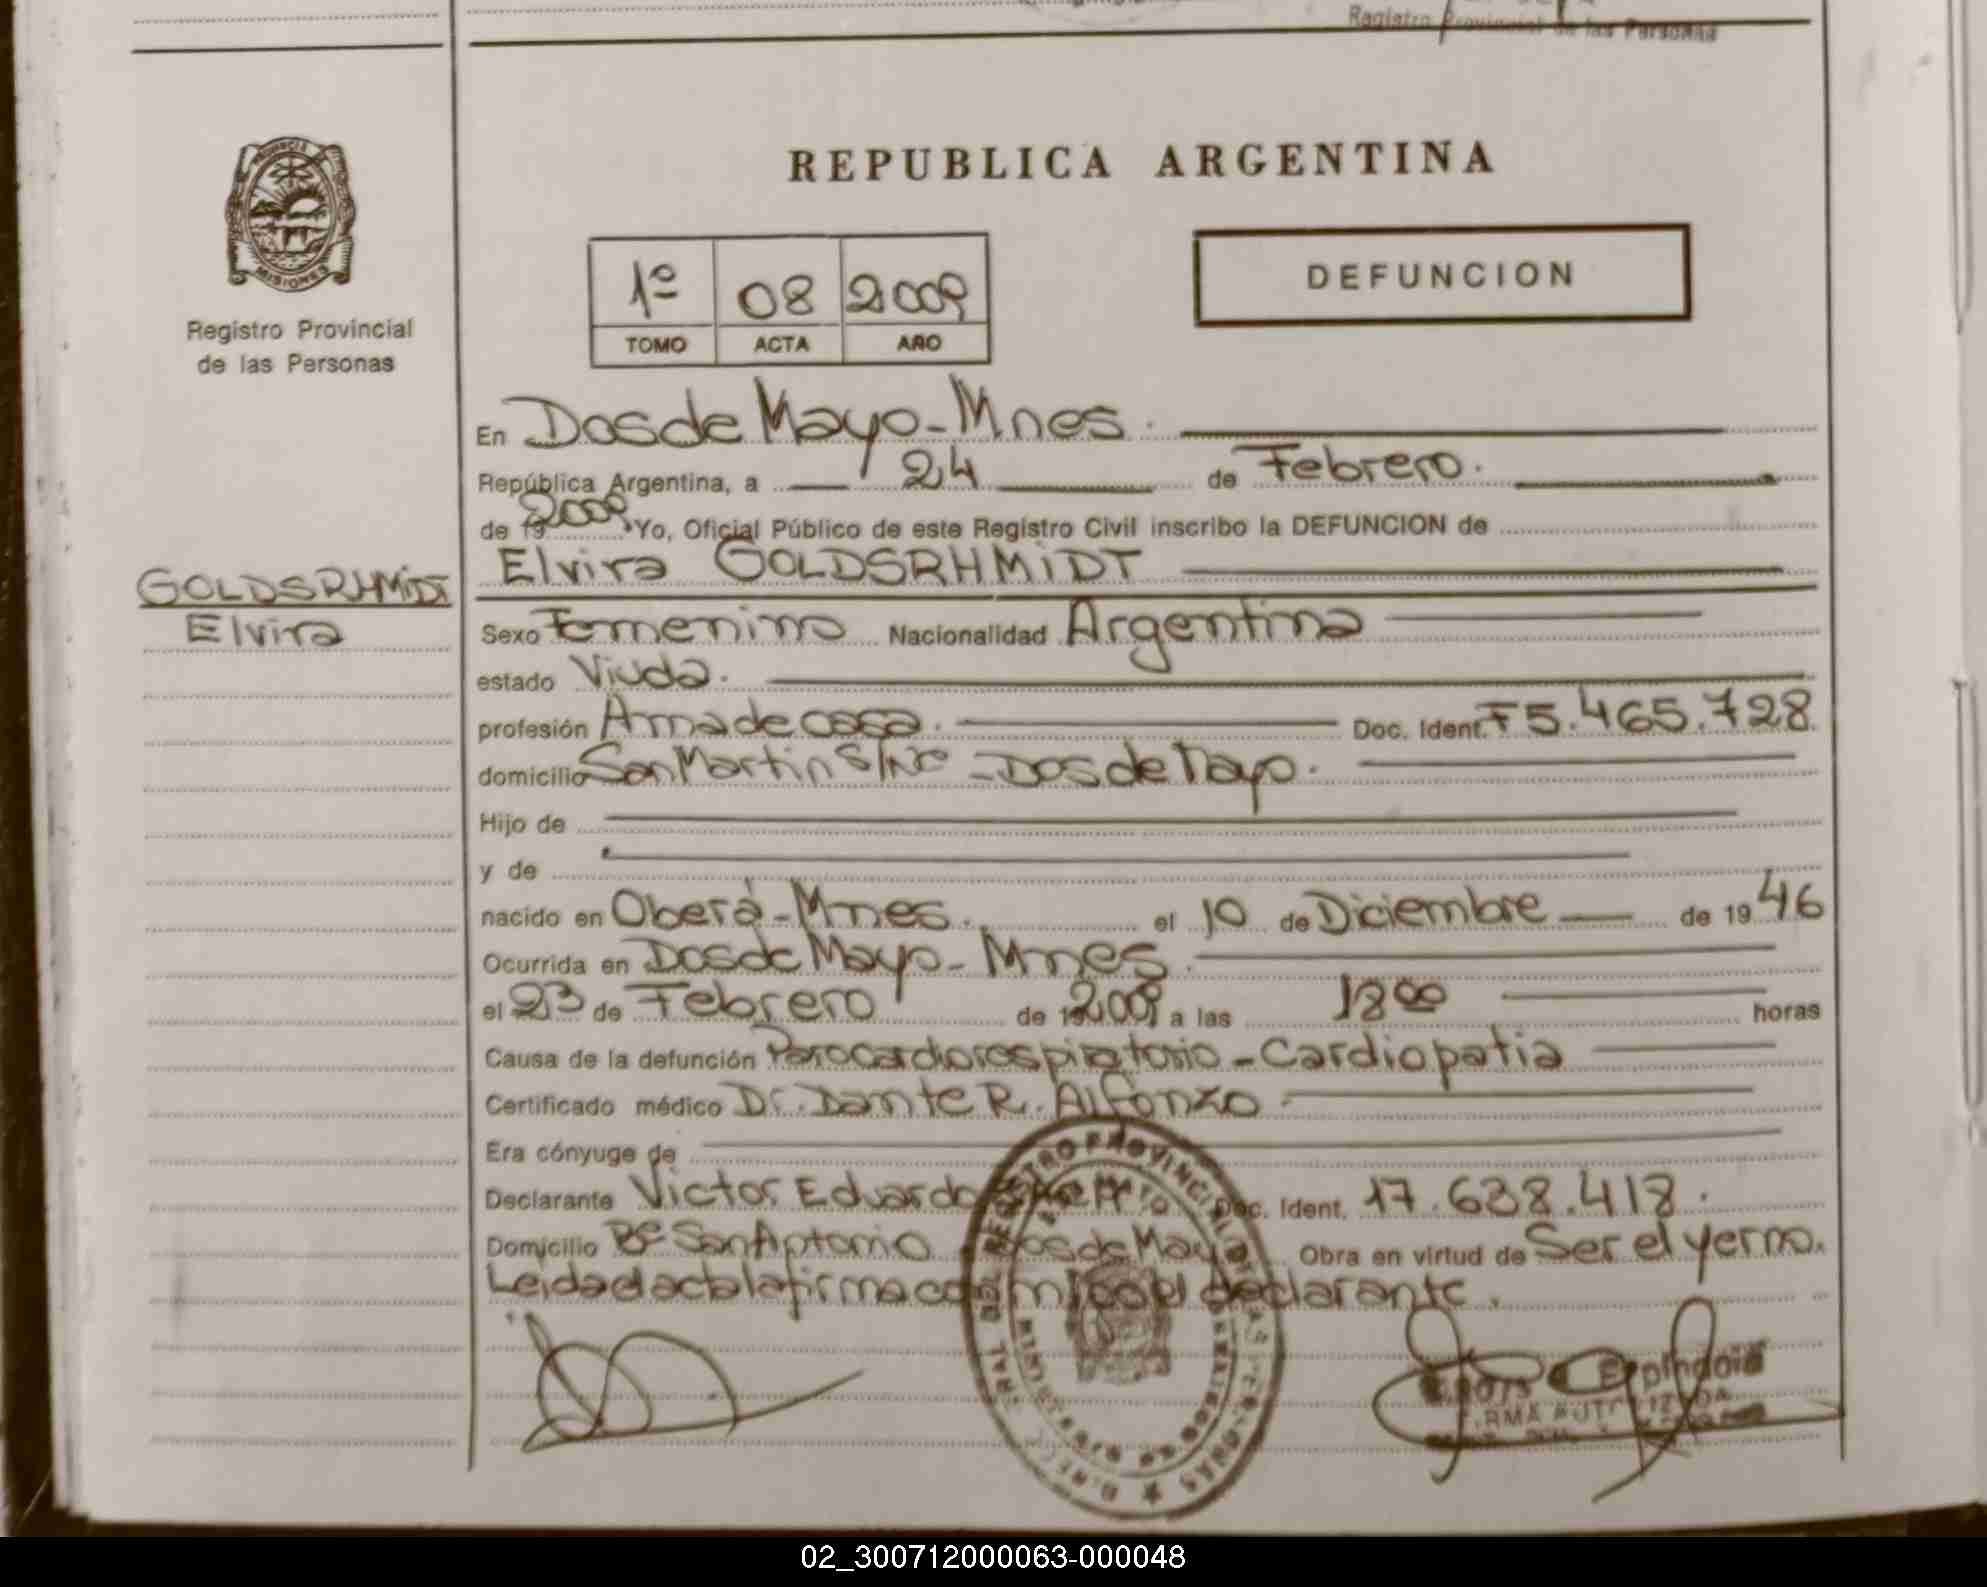 Registro Provincial de las Personas
REPUBLICA ARGENTINA
PROVINCIA
MISIONES
Registro Provincial
de las Personas
1º 08 2009
TOMO ACTA AÑO
DEFUNCION
En Dos de Mayo - Mnes.
República Argentina, a 24 de Febrero.
de 19 2009 Yo, Oficial Público de este Registro Civil inscribo la DEFUNCION de
Elvira GOLDSRHMIDT
GOLDSRHMIDT
Elvira
Sexo Femenino Nacionalidad Argentina
estado Viuda.
profesión Ama de casa. Doc. Ident. F5.465.728
domicilio San Martin S/Nº - Dos de Mayo.
Hijo de
y de
nacido en Oberá - Mnes. el 10 de Diciembre de 1946
Ocurrida en Dos de Mayo - Mnes.
el 23 de Febrero de 19 2009 a las 18 00 horas
Causa de la defunción Parocardiorespiratorio - Cardiopatia
Certificado médico Dr. Dante R. Alfonzo
Era cónyuge de
Declarante Victor Eduardo Doc. Ident. 17.638.418.
Domicilio Bº San Antonio Dos de Mayo Obra en virtud de Ser el yerno.
Leida el acta la firma conmigo el declarante.
REGISTRO PROVINCIAL DE LAS PERSONAS
Espindola
FIRMA AUTORIZADA
02_300712000063-000048